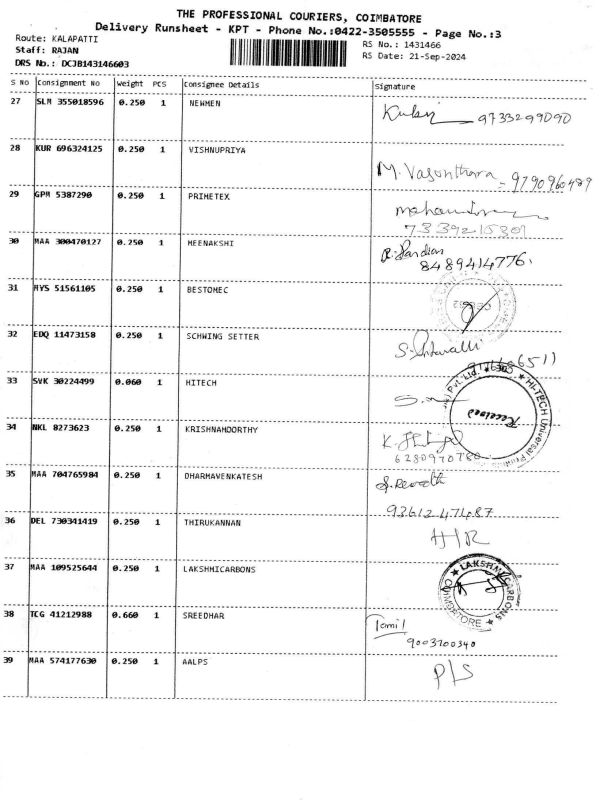 THE PROFESSIONAL COURIERS, COIMBATORE
Delivery Runsheet - KPT - Phone No.:0422-3505555 - Page No.:3
Route: KALAPATTI
RS No.: 1431466
Staff: RAJAN
RS Date: 21-Sep-2024
DRS No.: DCJB143146603
S No Consignment No Weight PCS Consignee Details Signature
27 SLM 355018596 0.250 1 NEWMEN
9733299090
28 KUR 696324125 0.250 1 VISHNUPRIYA
M. Vasonthara = 9790960489
29 GPM 5387290 0.250 1 PRIMETEX
7339215301
30 MAA 300470127 0.250 1 MEENAKSHI
R. Pandian
8489414776.
31 MYS 51561105 0.250 1 BESTOMEC
32 EDQ 11473158 0.250 1 SCHWING SETTER
33 SVK 30224499 0.060 1 HITECH
HI-TECH Universal Pvt. Ltd.
Received
34 NKL 8273623 0.250 1 KRISHNAMOORTHY
6280970780
35 MAA 704765984 0.250 1 DHARMAVENKATESH
S. Revathi
93612 47687
36 DEL 730341419 0.250 1 THIRUKANNAN
HIR
37 MAA 109525644 0.250 1 LAKSHMICARBONS
LAKSHMI CARBONS
COIMBATORE
38 TCG 41212988 0.660 1 SREEDHAR
Tamil
9003700340
39 MAA 574177630 0.250 1 AALPS
P/S